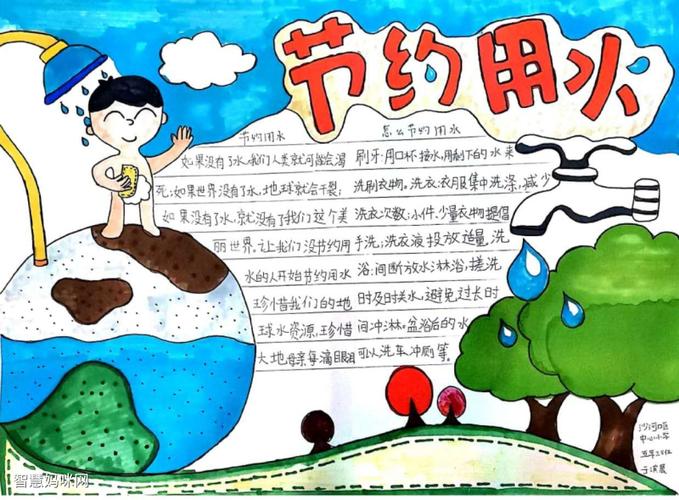 节约用水
节约用水
如果没有了水，我们人类就可能会渴
死；如果世界没有了水，地球就会干裂；
如果没有了水，就没有了我们这个美
丽世界。让我们没节约用
水的人开始节约用水
珍惜我们的地
球水资源，珍惜
大地母亲每滴眼泪
怎么节约用水
刷牙：用口杯接水，用剩下的水来
洗刷衣物。洗衣：衣服集中洗涤，减少
洗衣次数；小件、少量衣物提倡
手洗；洗衣液投放适量。洗
浴：间断放水淋浴，搓洗
时及时关水，避免过长时
间冲淋。盆浴后的水
可以洗车冲厕等。
沙河口区
中心小学
智慧妈咪网